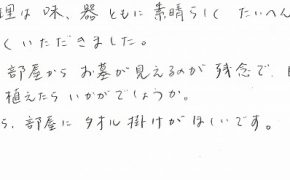 理は味、器ともに素晴らしく たいへん
くいただきました。
部屋からお墓が見えるのが残念で、
植えたらいかがでしょうか。
ら、部屋にタオル掛けがほしいです。